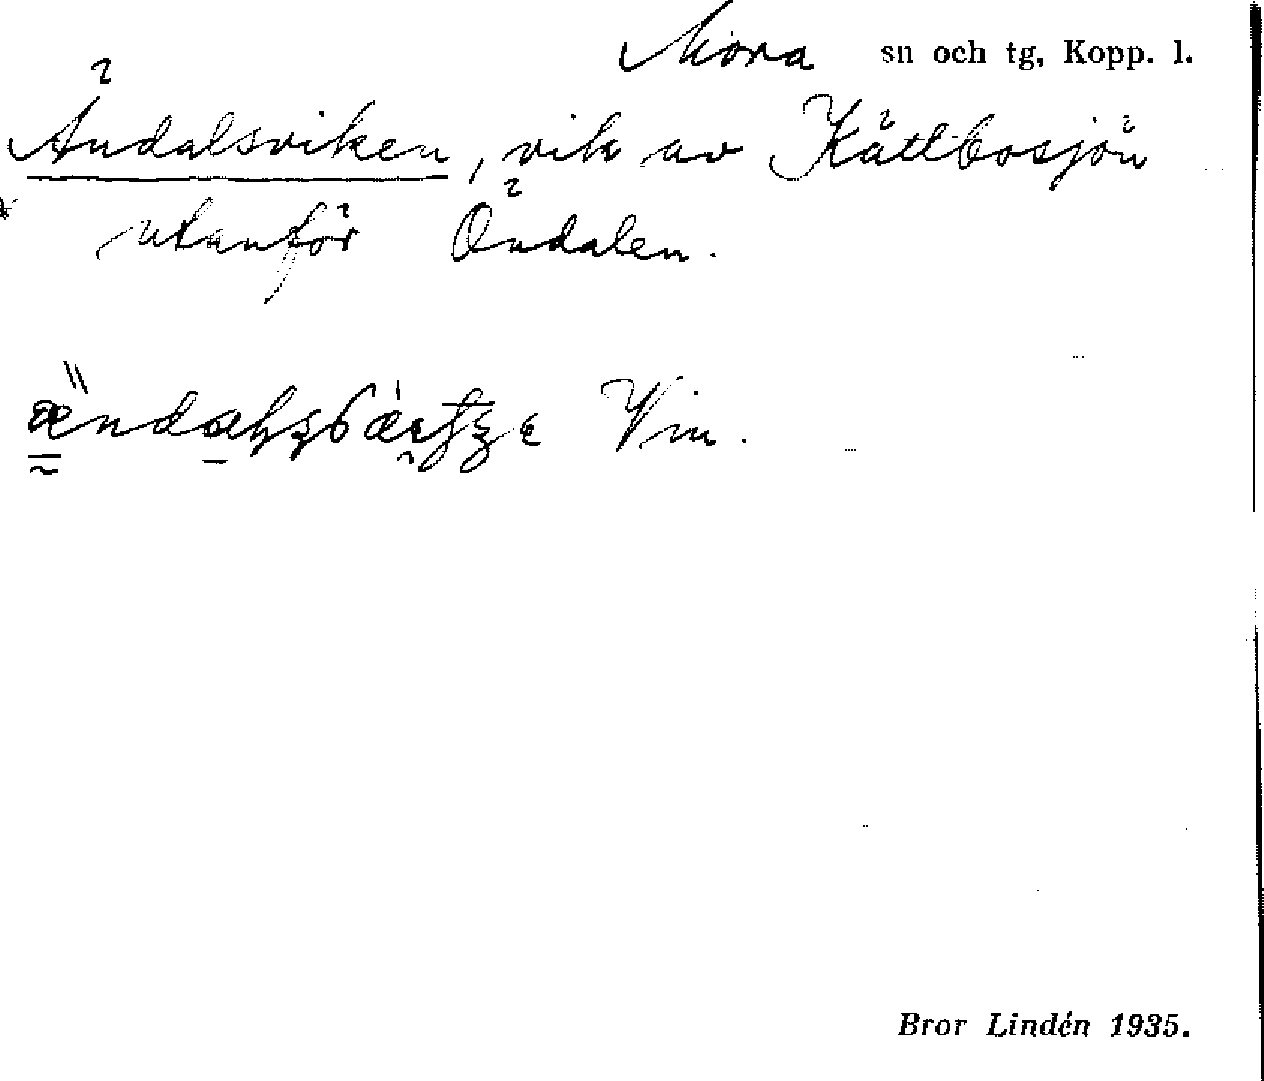 Mora sn och tg, Kopp. l.
Ändalsviken, vik av Kättbosjön
utanför Öndalen.
Vin.
Bror Lindén 1935.